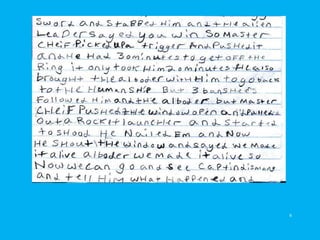 Sword and stabbed Him and the alien
Leader sayed you win So Master
Cheif Picked up a trigger And Pushed it
and He Had 3 minutes to get off the
Ring it only took Him 2 minutes He also
brought the alboder with Him to go back
to the Human Ship But 3 banshees
Followed Him and the alboder but Master
Cheif Pushed the window open and Pulled
out a Rocket launcher and Started
to shood He Nailed Em and Now
He shout the window and sayed we made
it alive alboder we made it alive so
Now we can go and see Captin
and tell Him what Happened and